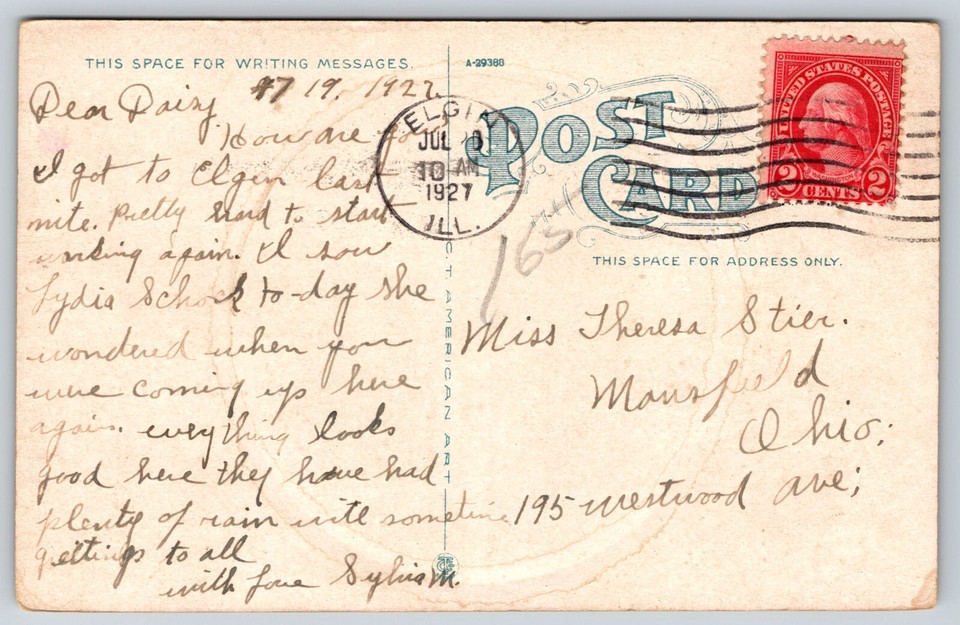 THIS SPACE FOR WRITING MESSAGES.
A-29388
POST CARD
UNITED STATES POSTAGE
2 CENTS 2
ELGIN
JUL
10 AM
1927
ILL.
Dear Daisy 7 19, 1927.
How are
I got to Elgin last
nite. Pretty hard to start
working again. I saw
Lydia Schock to-day she
wondered when you
were coming up here
again. everything looks
good here they have had
plenty of rain
to all
with love Sylvia M.
C.T. AMERICAN ART
THIS SPACE FOR ADDRESS ONLY.
Miss Theresa Stier.
Mansfield
Ohio;
195 Westwood Ave;